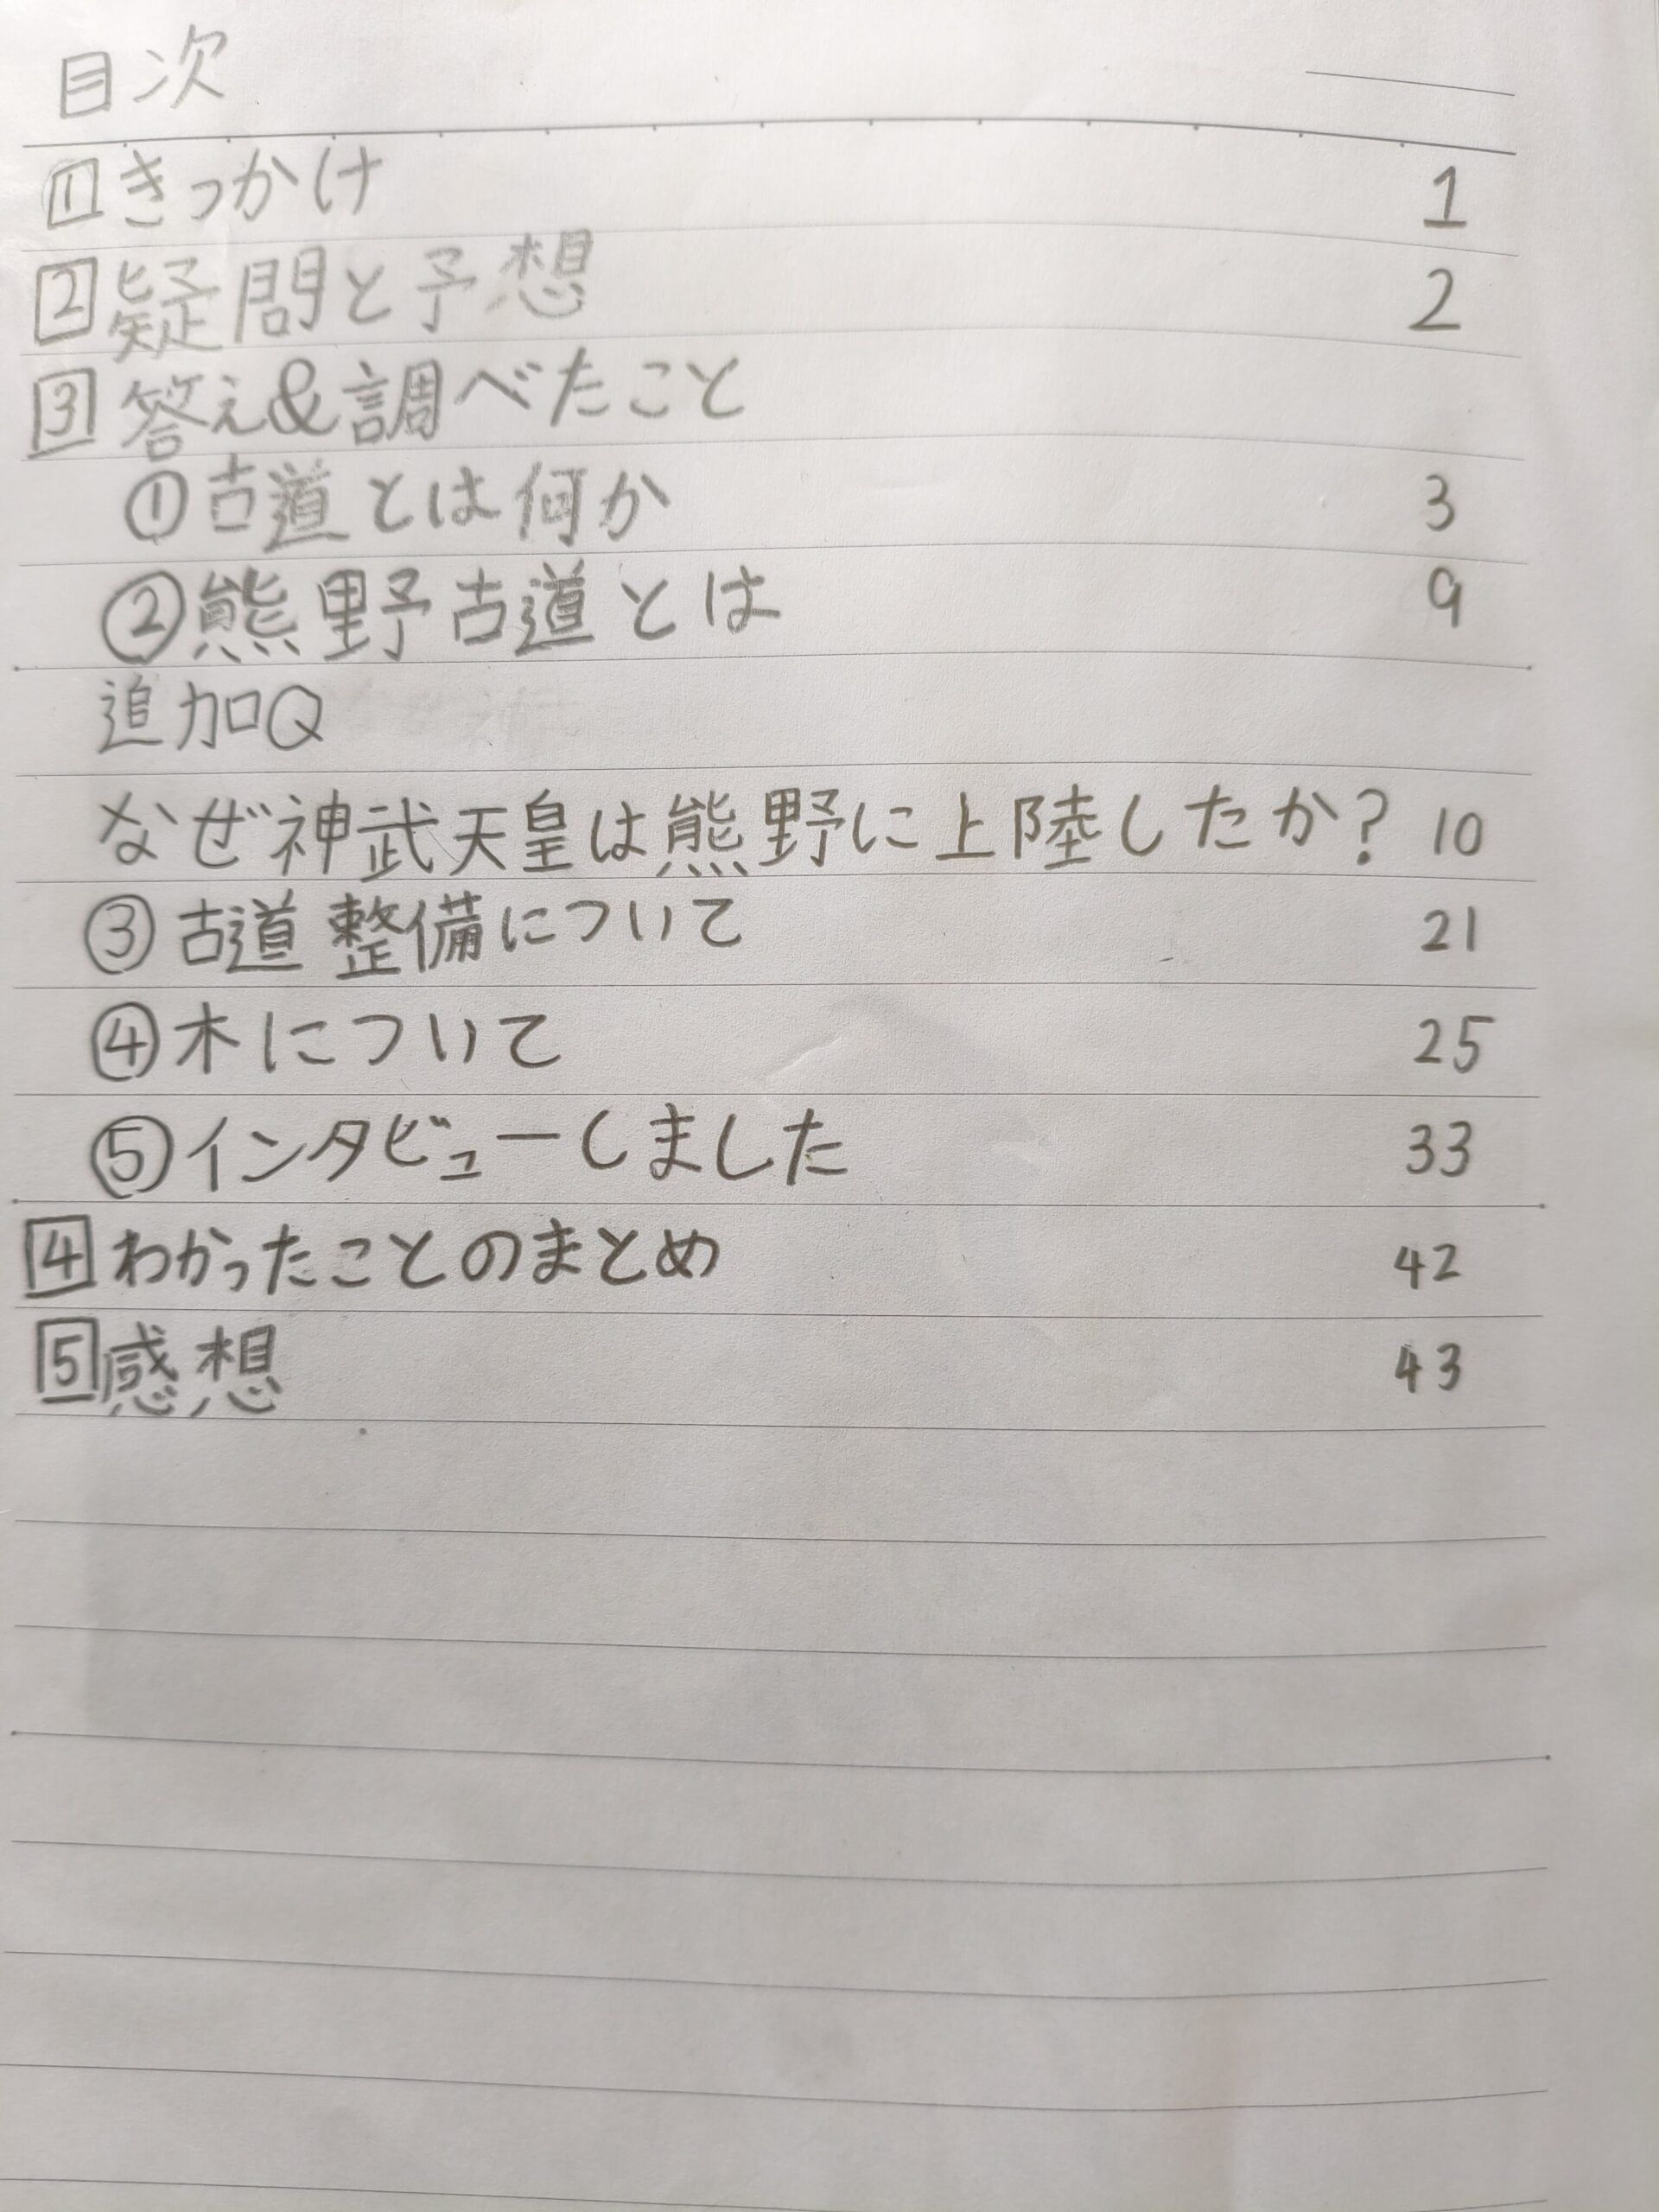 目次
1 きっかけ 1
2 疑問と予想 2
3 答え&調べたこと
①古道とは何か 3
②熊野古道とは 9
追加Q
なぜ神武天皇は熊野に上陸したか? 10
③古道整備について 21
④木について 25
⑤インタビューしました 33
4 わかったことのまとめ 42
5 感想 43